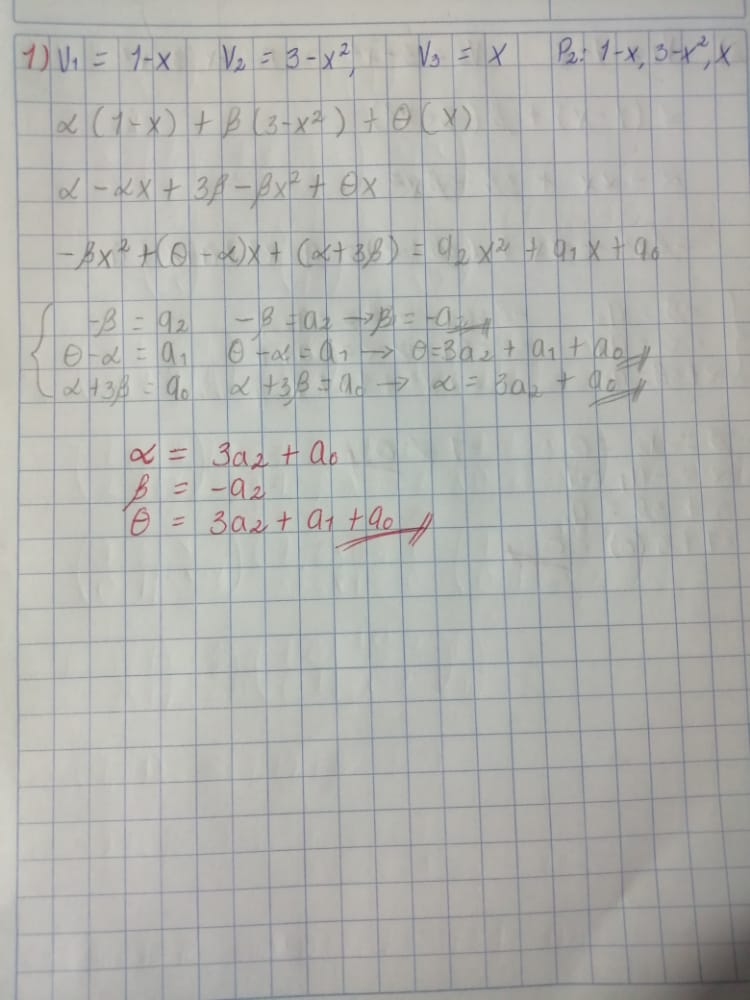 1) V₁ = 1-x V₂ = 3-x², V₃ = x P₂: 1-x, 3-x², x
α (1-x) + β (3-x²) + θ(x)
α - αx + 3β - βx² + θx
-βx² + (θ - α)x + (α+3β) = a₂x² + a₁x + a₀
-β = a₂ -β = a₂ → β = -a₂
θ-α = a₁ θ-α = a₁ → θ=3a₂ + a₁ + a₀
α+3β = a₀ α+3β = a₀ → α = 3a₂ + a₀
α = 3a₂ + a₀
β = -a₂
θ = 3a₂ + a₁ + a₀